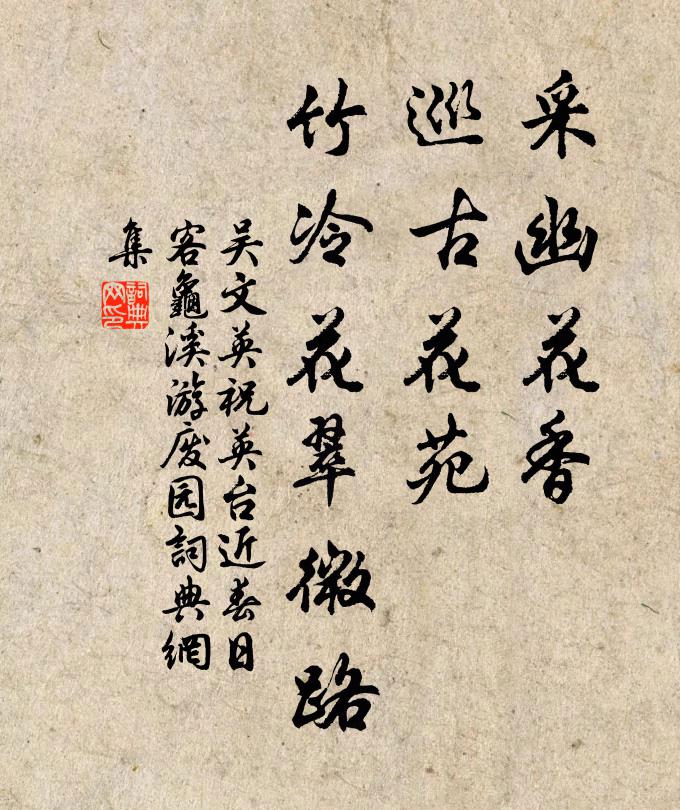 采幽花香
巡古花苑
竹冷花翠微路
吴文英祝英台近春日
客龜溪游废园詞典網
集
詞典
网印